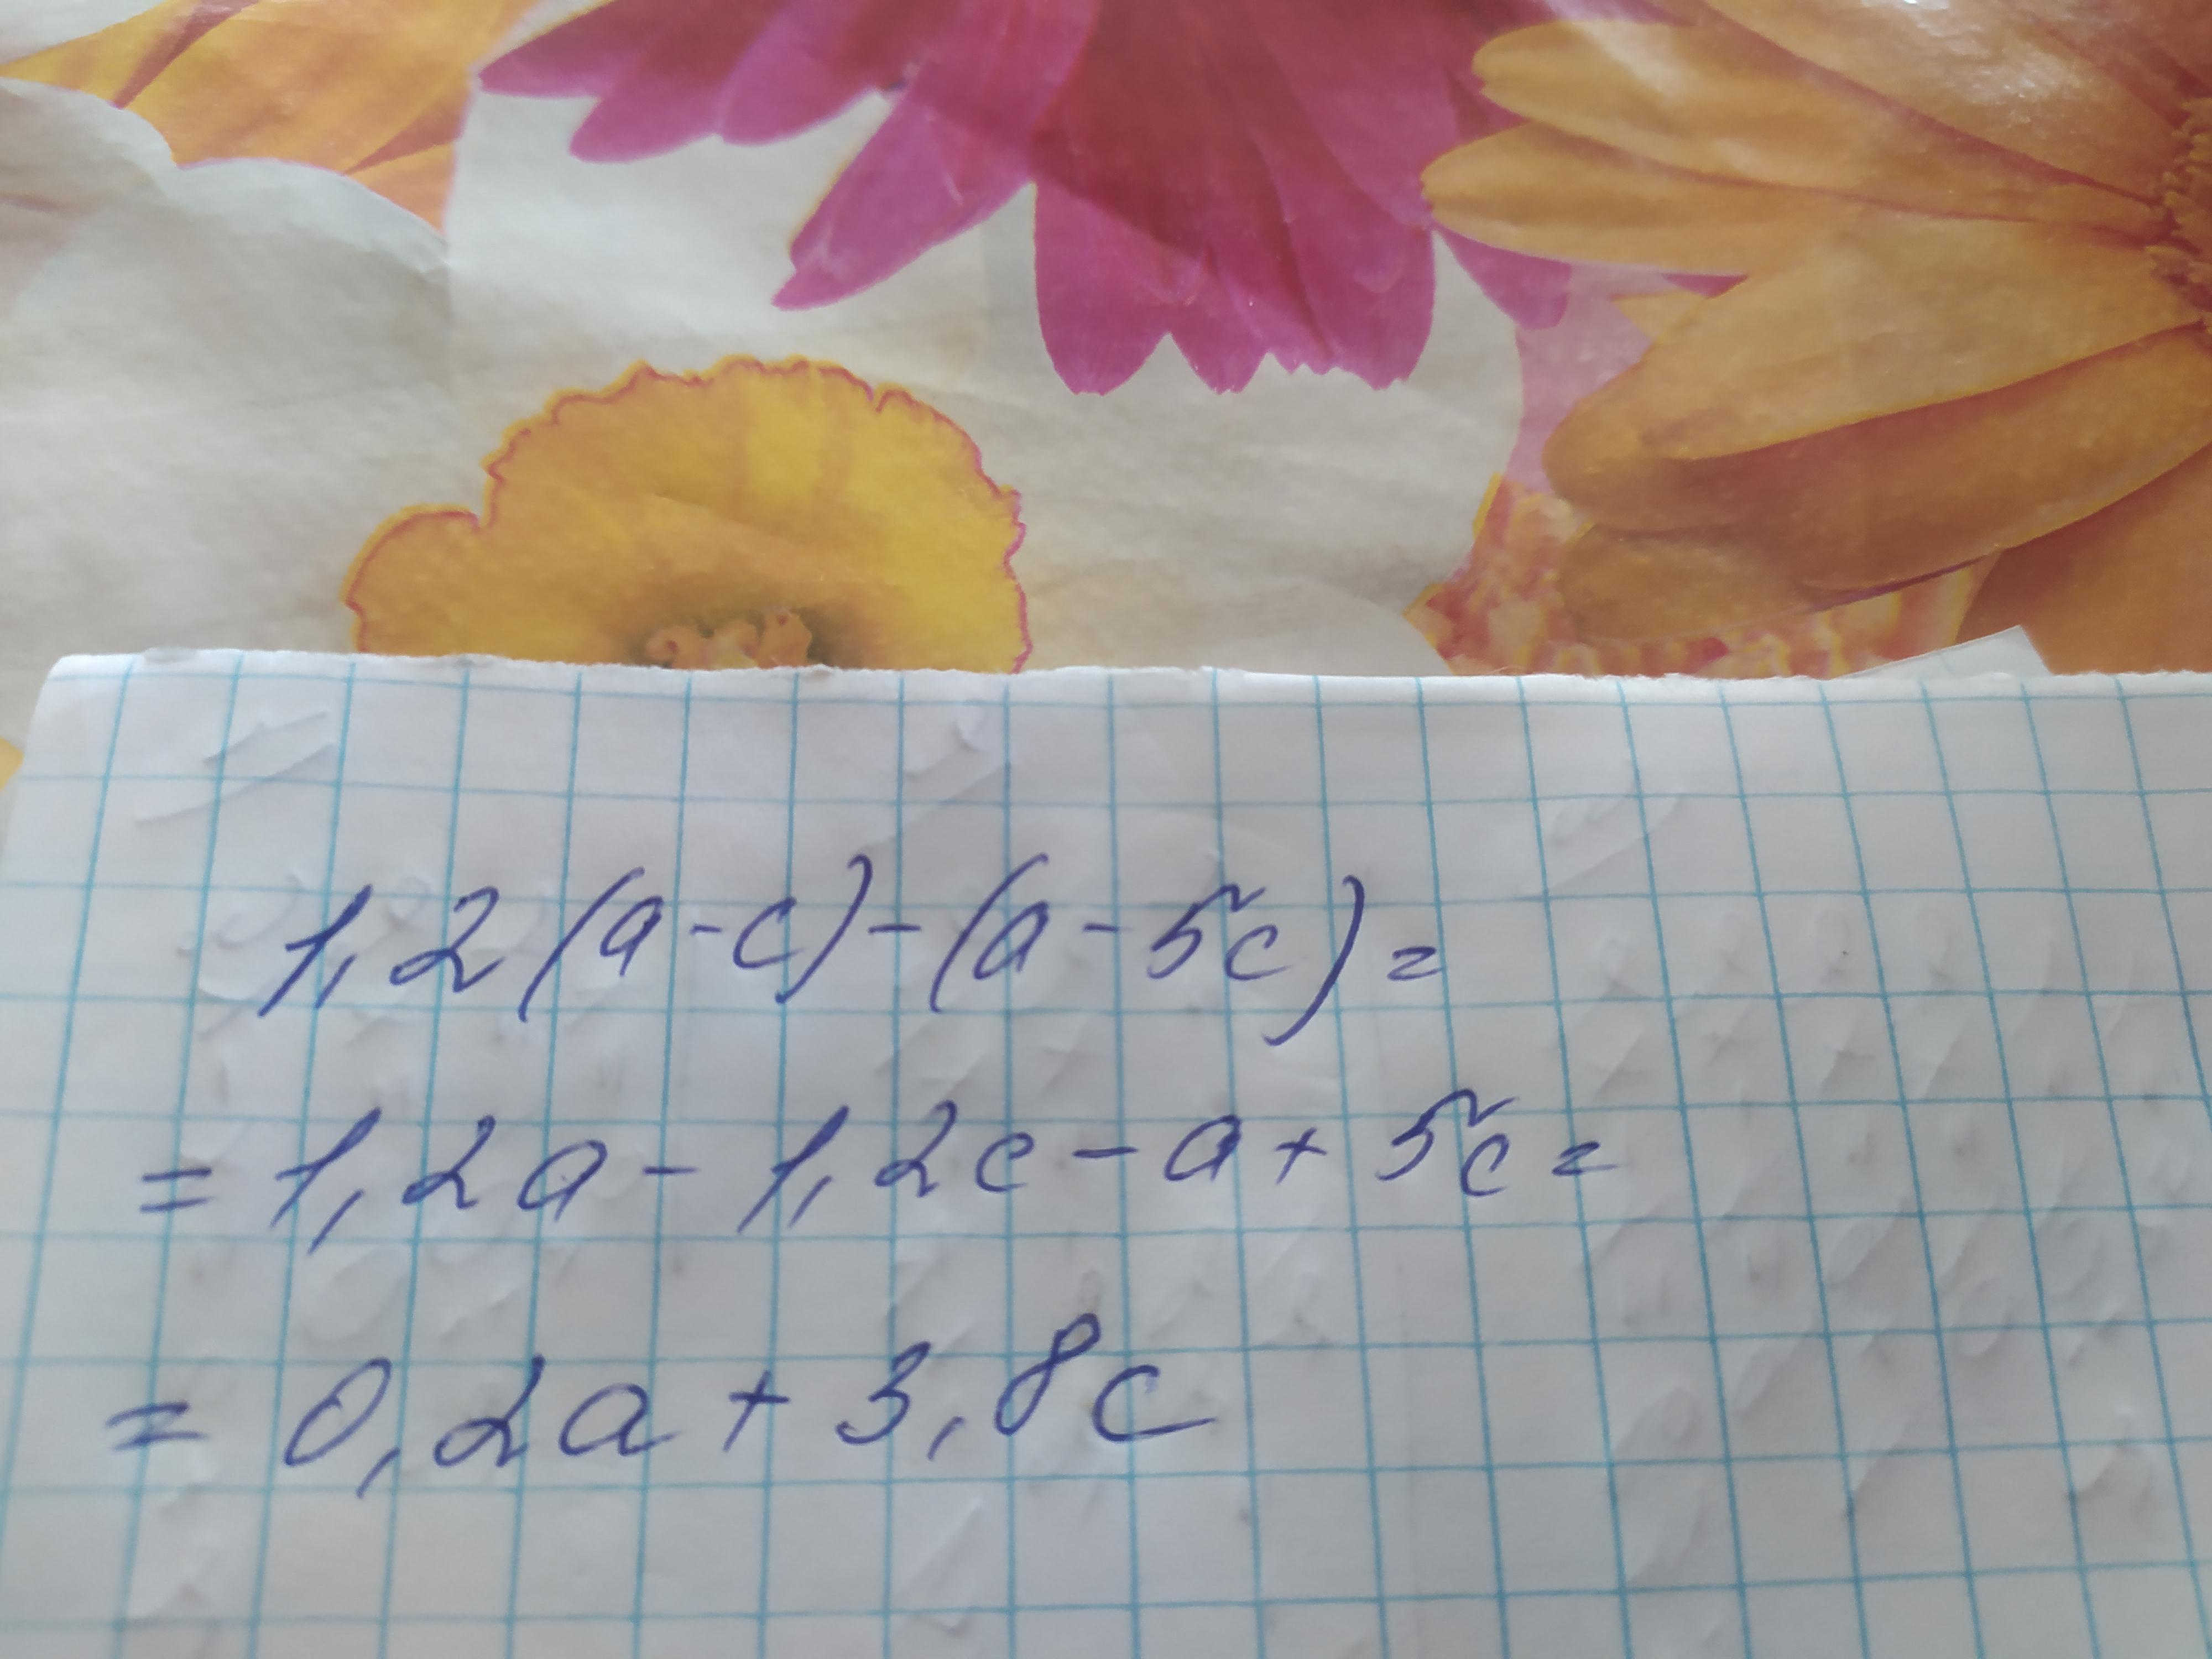 1,2(a-c)-(a-5c)=
=1,2a-1,2c-a+5c=
=0,2a+3,8c